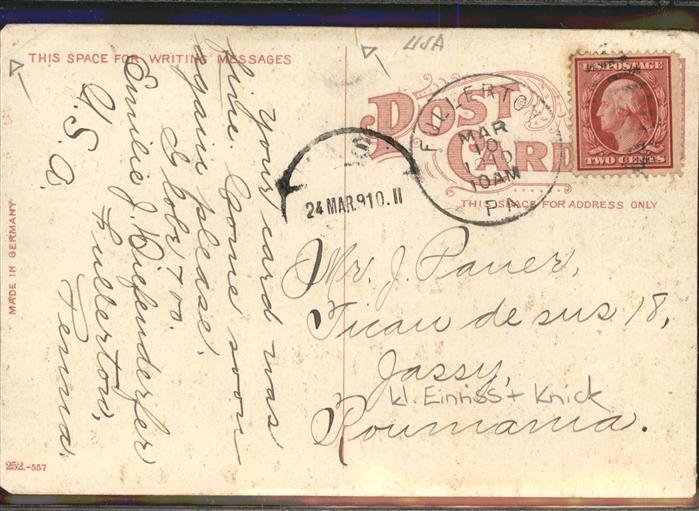 USA
THIS SPACE FOR WRITING MESSAGES
POST CARD
THIS SPACE FOR ADDRESS ONLY
FULLERTON
MAR
10
10AM
PA
U.S. POSTAGE
TWO CENTS
24 MAR.910.11
Your card was
fine. Come soon
again please.
G lobs 700.
Emilie J. Diefenderfer
Fullerton,
Penna.
U. S. A.
Mr. J. Pauer,
Ticau de sus 18,
Jassy,
kl. Einriss + Knick
Roumania.
MADE IN GERMANY
252.-557